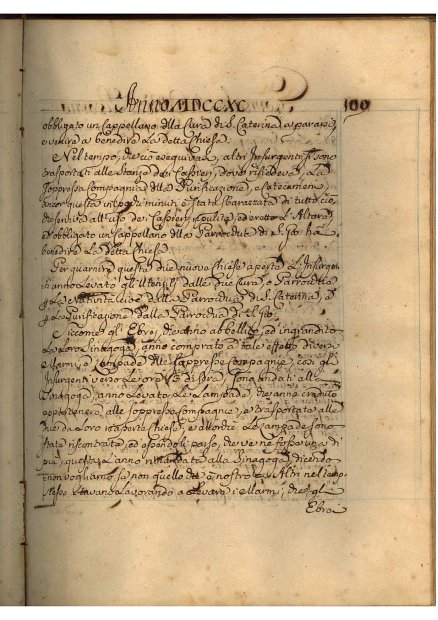 Anno MDCCXC 109
obbligato un Cappellano della Cura di S. Caterina, a pararsi,
e venire a benedire la detta Chiesa.
Nel tempo, che ciò eseguivasi, altri Insurgenti si sono
trasportati alle Stanze dei Casseri, dove risiedeva la
Soppressa Compagnia della Purificazione, e Catecumeni,
ancor questa in poghi minuti è stata sbarazzata di tutto ciò,
che serviva all'uso dei Casseri, pulita, ed eretto l'Altare,
ed obbligato un Cappellano della Parrocchia di S. Gio: ha
benedetto la detta Chiesa.
Per guarnire queste due nuove Chiese aperte gl'Insurgenti
anno levato gli Utensili dalle due Cure, o Parrocchie
p la Natività Loro della Parrocchia di S. Caterina, e
p la Purificazione dalla Parrocchia di S. Gio:
Siccome gl'Ebrei, che anno abbellito, ed ingrandito
la loro Sinagoga, anno comprato a tale effetto diversi
Marmi, e Lampade delle Soppresse Compagnie, così gl'
Insurgenti verso le ore di sera, sono andati alla
Sinagoga, anno levato le Lampade, che anno creduto
appartenere alle Soppresse Compagnie, e trasportate alle
due da loro riaperte Chiese, e allorchè le Lampade sono
state riscontrate, ed essendosi visto, che ve ne fosse una di
più, questa l'anno rimandata alla Sinagoga, dicendo
non vogliamo se non quello che è nostro. Altri nel temp
stesso stavano lavorando a levare i Marmi, che gl'
Ebrei